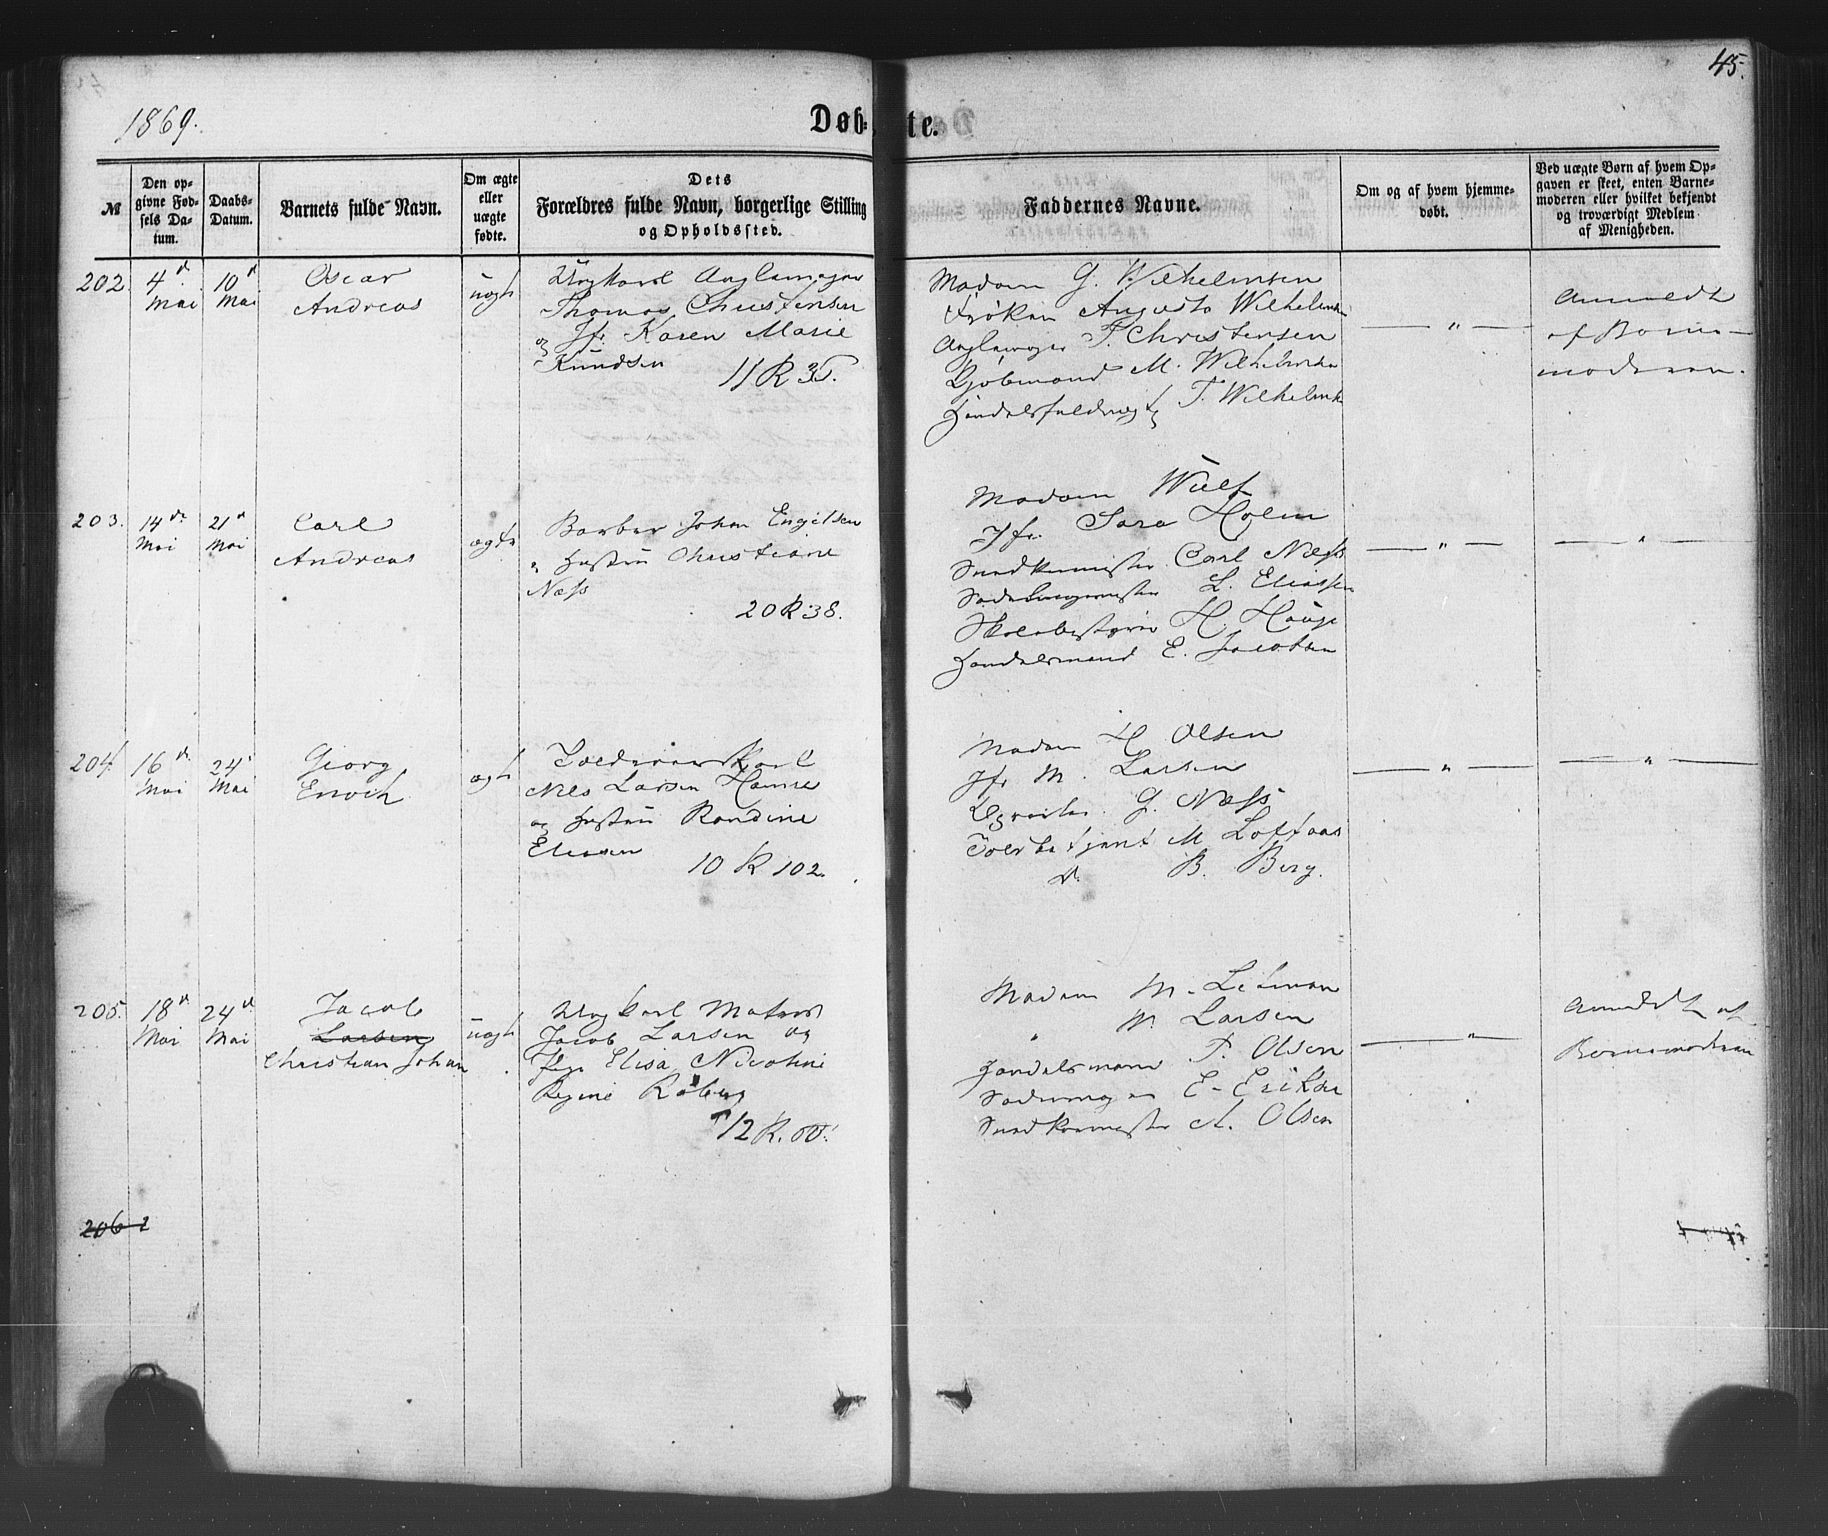 45.
1869.
Døb-te.
№
Den opgivne Fødsels Datum.
Daabs-Datum.
Barnets fulde Navn.
Om ægte eller uægte fødte.
Dets Forældres fulde Navn, borgerlige Stilling og Opholdssted.
Faddernes Navne.
Om og af hvem hjemmedøbt.
Ved uægte Børn af hvem Opgaven er skeet, enten Barnemoderen eller hvilket bekjendt og troværdigt Medlem af Menigheden.
202
4d Mai
10d Mai
Oscar
Andreas
uægte
Ungkarl
Thomas Christensen
og Jfr Karen Marie
Knudsen
11 R 35.
Madam G. Wilhelmsen
Frøken Augusta Wilhelmsen
P. Christensen
M. Wilhelmsen
Handelsfuldmægt T. Wilhelmsen
— " —
Anmeldt
af Barne-
moderen.
203.
14de Mai
21d Mai
Carl
Andreas
ægte
Barber Johan Engelsen
Hustru Christiane
Næss
20 R 38.
Madam Wülf
Jfr. Sara Holm
Snedkermester Carl Næss
L. Eliassen
Skolebestyrer H. Hauge
Handelsmand E. Jacobsen
— " —
— " —
204.
16de Mai
24d Mai
Georg
Enoch
ægte
Nils Larsen
og Hustru Randine
Eliasen
10 R 102.
Madam H Olsen
Jfr M. Larsen
G. Næss
Toldbetjent M Loftaas
do B. Berg.
— " —
— " —
205.
18d Mai
24d Mai
Jacob
Larsen
Christian Johan
uægte
Ungkarl Matros
Jacob Larsen og
Elisa Nicoline
Regine
12 R. 60.
Madam M. Lehman
" M. Larsen
Handelsmand P. Olsen
E. Eriksen
Snedkermester A. Olsen
— " —
Anmeldt af
Barnemoderen
206